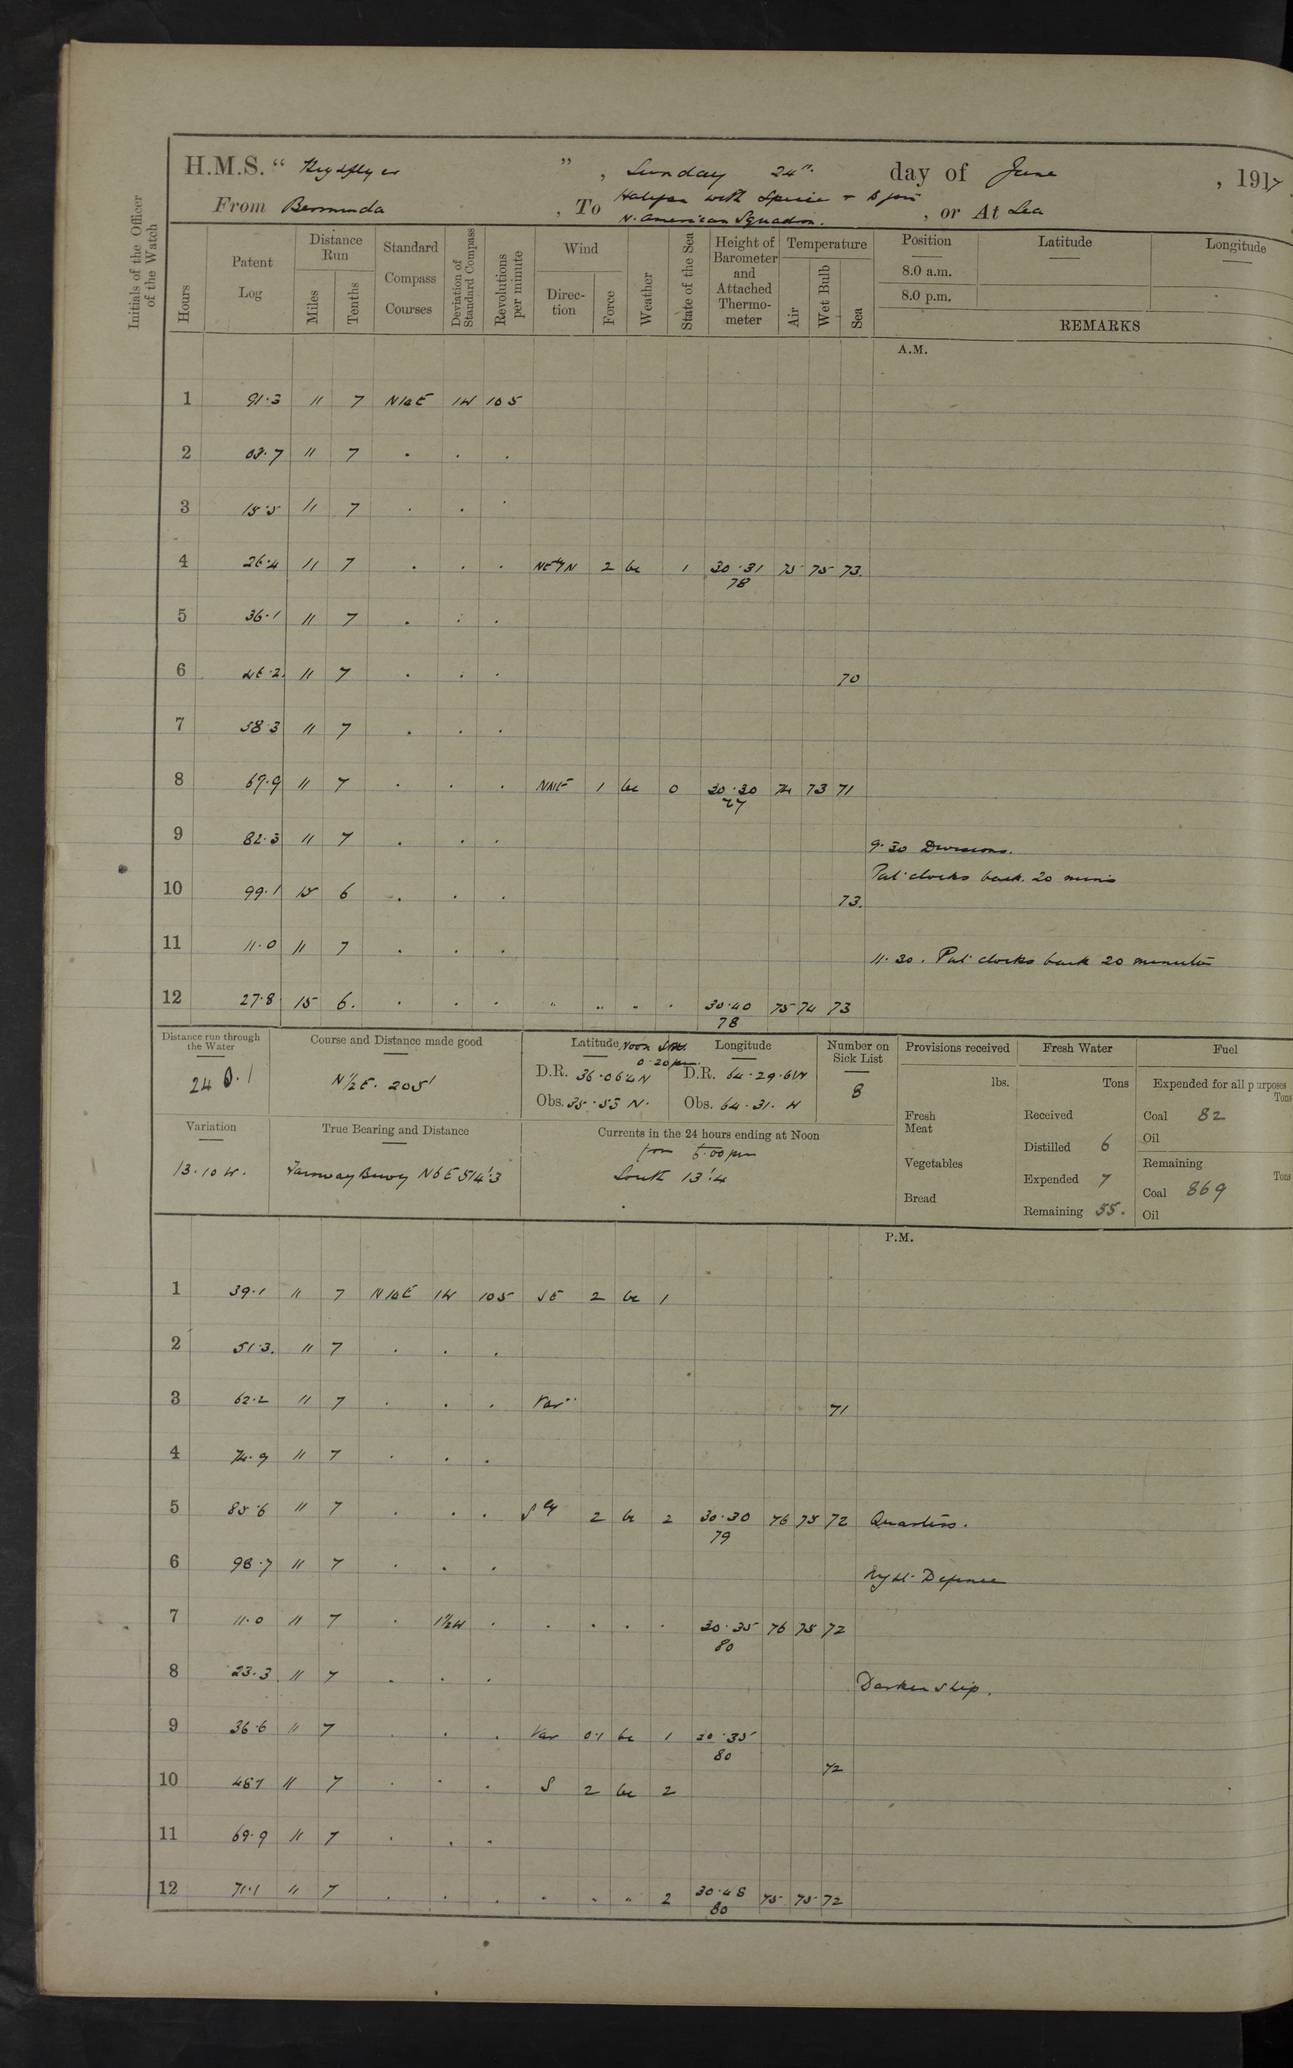 H.M.S. "Highflyer", Sunday 24th day of June, 1917
From Bermuda, To Halifax with & join N. American Squadron., or At Sea
Initials of the Officer of the Watch
Hours Patent Log Distance Run Miles Tenths Standard Compass Courses Deviation of Standard Compass Revolutions per minute Wind Direction Force Weather State of the Sea Height of Barometer and Attached Thermometer Temperature Air Wet Bulb Sea
Position Latitude Longitude
8.0 a.m.
8.0 p.m.
REMARKS
A.M.
1 91.3 11 7 N10E 1W 105
2 03.7 11 7 . . .
3 15.5 11 7 . . .
4 26.4 11 7 . . . NEbyN 2 bc 1 30.31 75 75 73.
78
5 36.1 11 7 . . .
6 46.2 11 7 . . . 70
7 58.3 11 7 . . .
8 69.9 11 7 . . . NNE 1 bc 0 30.30 74 73 71
77
9 82.3 11 7 . . . 9.30 Divisions.
Put clocks back 20 mins
10 99.1 15 6 . . . 73.
11 11.0 11 7 . . . 11.30. Put clocks back 20 minutes
12 27.8 15 6. . . . " " " . 30.40 75 74 73
78
Distance run through the Water
240.1
Course and Distance made good
N½E. 205'
Latitude Noon Longitude
0.20pm
D.R. 36.06¼N D.R. 64.29.6W
Obs. 35.53 N. Obs. 64.31. W
Number on Sick List
8
Variation
13.10 W.
True Bearing and Distance
Fairway Buoy N6E 514'.3
Currents in the 24 hours ending at Noon
from 5.00pm
South 13'.4
Provisions received
lbs.
Fresh Meat
Vegetables
Bread
Fresh Water
Tons
Received
Distilled 6
Expended 7
Remaining 55.
Fuel
Expended for all purposes
Tons
Coal 82
Oil
Remaining
Tons
Coal 869
Oil
P.M.
1 39.1 11 7 N10E 1W 105 SE 2 bc 1
2 51.3. 11 7 . . .
3 62.2 11 7 . . . Var. 71
4 74.9 11 7 . . .
5 85.6 11 7 . . . Sly 2 bc 2 30.30 76 75 72 Quarters.
79
6 98.7 11 7 . . . Night Defence
7 11.0 11 7 . 1½W . . . . . 30.35 76 75 72
80
8 23.3 11 7 . . . Darken ship.
9 36.6 11 7 . . . Var 0.1 bc 1 30.35
80
72
10 487 11 7 . . . S 2 bc 2
11 69.9 11 7 . . .
12 71.1 11 7 . . . . . " 2 30.45 75 75 72
80